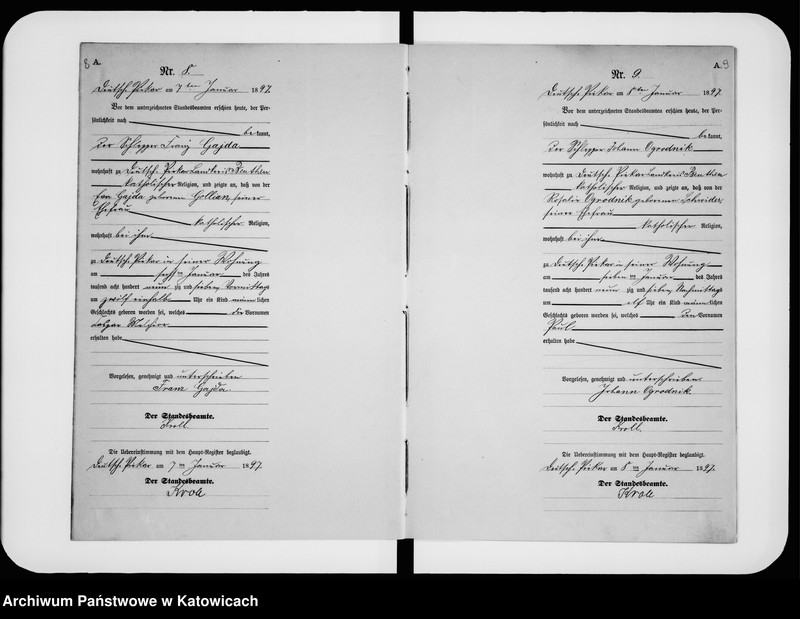 8 A.
Nr. 8.
Deutsch-Piekar am 7ten Januar 1897.
Vor dem unterzeichneten Standesbeamten erschien heute, der Per-
sönlichkeit nach
be kannt,
der Schlepper Franz Gajda
wohnhaft zu Deutsch-Piekar Landkreis Beuthen
katholischer Religion, und zeigte an, daß von der
Eva Gajda geborenen seiner
Ehefrau
katholischer Religion,
wohnhaft bei ihm
zu Deutsch-Piekar in seiner Wohnung
am sechsten Januar des Jahres
tausend acht hundert neun zig und sieben Vormittags
um zwölf einhalb Uhr ein Kind männlichen
Geschlechts geboren worden sei, welches die Vornamen
erhalten habe
Vorgelesen, genehmigt und unterschrieben
Franz Gajda.
Der Standesbeamte.
Kroll
Die Uebereinstimmung mit dem Haupt-Register beglaubigt.
Deutsch-Piekar am 7ten Januar 1897.
Der Standesbeamte.
Kroll
A. 9
Nr. 9.
Deutsch-Piekar am 8ten Januar 1897.
Vor dem unterzeichneten Standesbeamten erschien heute, der Per-
sönlichkeit nach
be kannt,
der Schlepper Johann Ogrodnik
wohnhaft zu Deutsch-Piekar Landkreis Beuthen
katholischer Religion, und zeigte an, daß von der
Rosalie Ogrodnik geborenen
seiner Ehefrau
katholischer Religion,
wohnhaft bei ihm
zu Deutsch-Piekar in seiner Wohnung
am siebenten Januar des Jahres
tausend acht hundert neun zig und sieben Nachmittags
um elf Uhr ein Kind männlichen
Geschlechts geboren worden sei, welches den Vornamen
Paul
erhalten habe
Vorgelesen, genehmigt und unterschrieben
Johann Ogrodnik.
Der Standesbeamte.
Kroll.
Die Uebereinstimmung mit dem Haupt-Register beglaubigt.
Deutsch-Piekar am 8ten Januar 1897.
Der Standesbeamte.
Kroll
Archiwum Państwowe w Katowicach